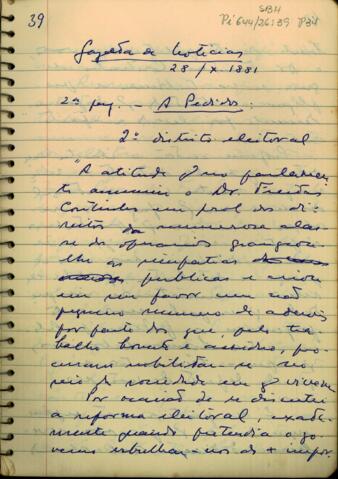 SBH
39 Pi 644/26:39 P34
Gazeta de Notícias
28/X/1881
2ª pag. - A Pedido:
2º distrito eleitoral
"A atitude q no parlamen
to assumiu o Dr. Freitas
Coutinho em prol dos di-
reitos da numerosa clas-
se dos operarios grangeou-
lhe as simpatias
publicas e criou
em seu favor um não
pequeno numero de adesões
por parte dos que, pelo tra
balho honesto e assiduo, pro
curam nobilitar-se no
meio da sociedade em q vivem
Por ocasião de se discutir
a reforma eleitoral, exata-
mente quando pretendia o go-
verno esbulhar-nos do + impor.